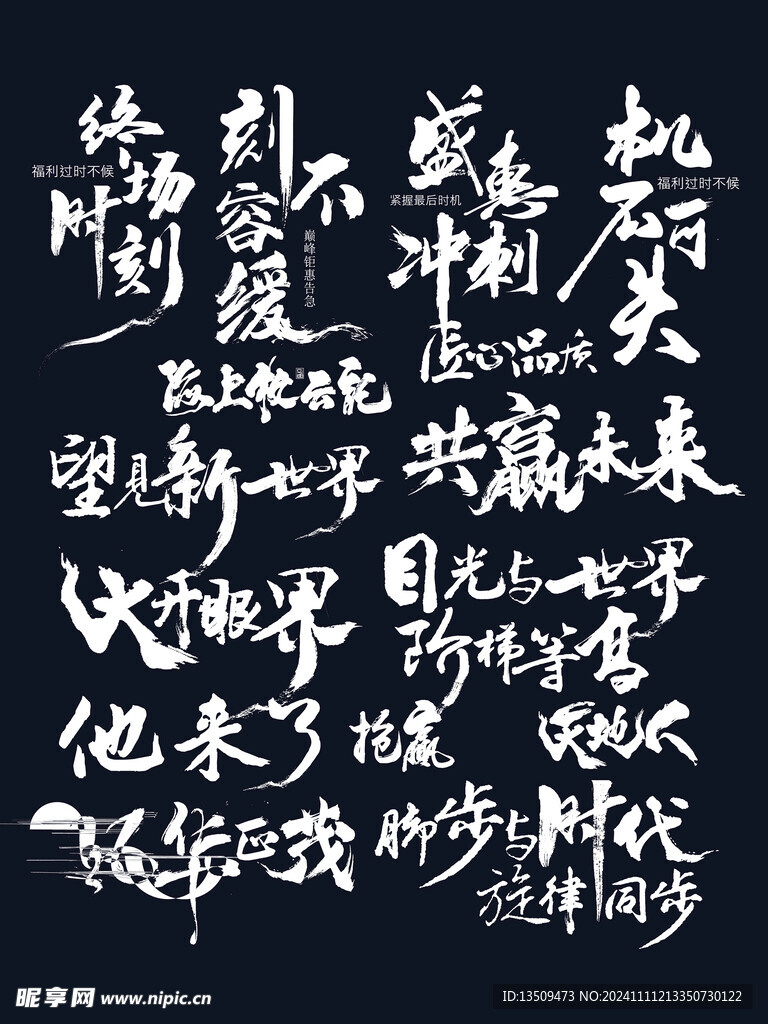 终场时刻
福利过时不候
刻不容缓
巅峰钜惠告急
盛惠冲刺
紧握最后时机
机不可失
福利过时不候
匠心品质
陌上牧云记
望见新世界
共赢未来
大开眼界
目光与世界
阶梯等高
他来了
抢赢
天地人
风华正茂
脚步与时代
旋律同步
昵享网 www.nipic.cn
ID:13509473 NO:20241111213350730122